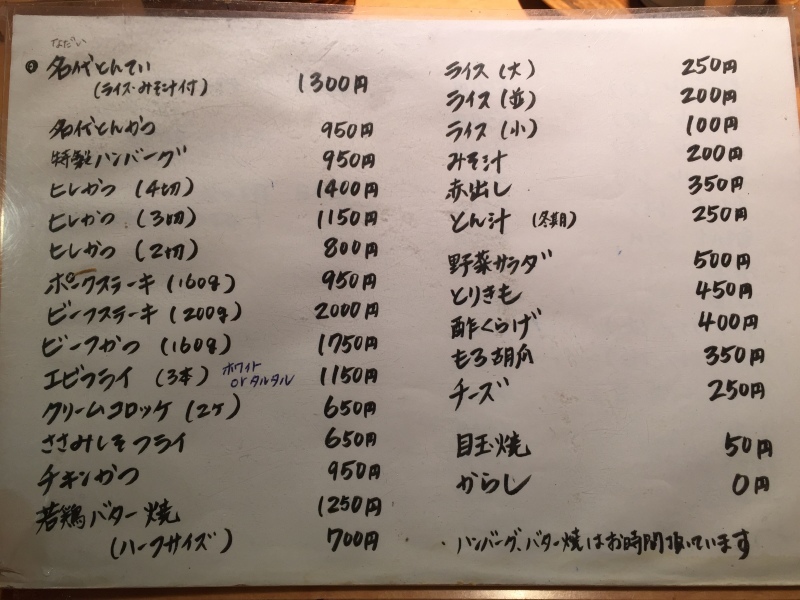 なだい
名代とんてい 1300円
(ライス・みそ汁付)
名代とんかつ 950円
特製ハンバーグ 950円
ヒレかつ (4切) 1400円
ヒレかつ (3切) 1150円
ヒレかつ (2切) 800円
ポークステーキ (160g) 950円
ビーフステーキ (200g) 2000円
ビーフかつ (160g) 1750円
エビフライ (3本) ホワイト or タルタル 1150円
クリームコロッケ (2ケ) 650円
ささみしそフライ 650円
チキンかつ 950円
若鶏バター焼 1250円
(ハーフサイズ) 700円
ライス (大) 250円
ライス (並) 200円
ライス (小) 100円
みそ汁 200円
赤出し 350円
とん汁 (冬期) 250円
野菜サラダ 500円
とりきも 450円
酢くらげ 400円
もろ胡瓜 350円
チーズ 250円
目玉焼 50円
からし 0円
ハンバーグ、バター焼はお時間頂いています